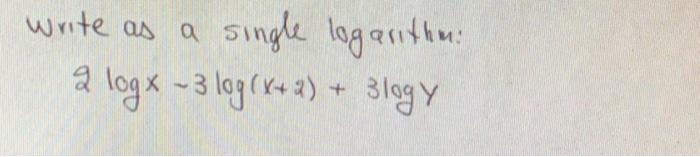 Write as a single logarithm:
2 logx - 3 log(x+2) + 3logy